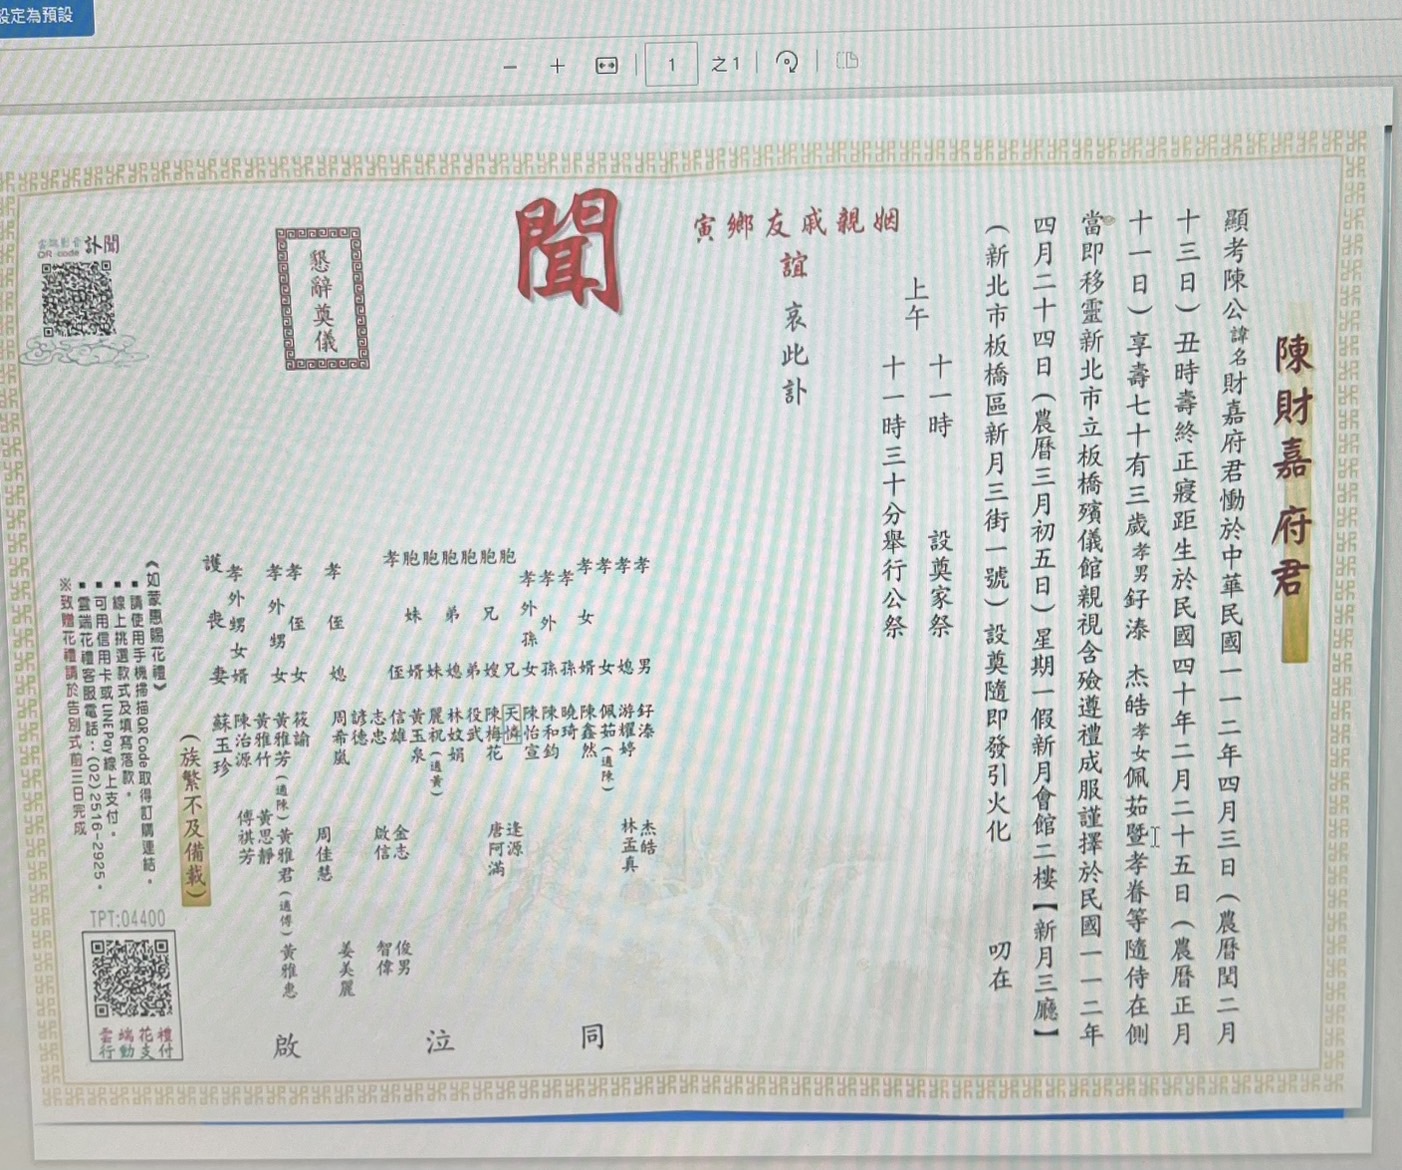 設定為預設
1 之1
陳財嘉 府君
顯考陳公諱名財嘉府君慟於中華民國一一二年四月三日(農曆閏二月
十三日)丑時壽終正寢距生於民國四十年二月二十五日(農曆正月
十一日)享壽七十有三歲孝男釪溱 杰皓孝女佩茹暨孝眷等隨侍在側
當即移靈新北市立板橋殯儀館親視含殮遵禮成服謹擇於民國一一二年
四月二十四日(農曆三月初五日)星期一假新月會館二樓【新月三廳】
(新北市板橋區新月三街一號)設奠隨即發引火化 叨在
上午 十一時 設奠家祭
十一時三十分舉行公祭
寅鄉友戚親姻
誼 哀此訃
聞
孝男 釪溱 杰皓
孝媳 游耀婷 林孟真
孝女 佩茹(適陳)
孝女婿 陳鑫然
孝孫 曉琦
孝外孫 陳和鈞
孝外孫女 陳怡宣
胞兄 天憐 逢源
胞兄嫂 陳梅花 唐阿滿
胞弟 役武
胞弟媳 林妏娟
胞妹 麗祝(適黃)
胞妹婿 黃玉泉
孝侄 信雄 金志 俊男
志忠 啟信 智偉
諺德
孝侄媳 周希嵐 周佳慧 姜美麗
孝侄女 筱諭
孝外甥女 黃雅芳(適陳) 黃雅君(適傅) 黃雅惠
黃雅竹 黃思靜
孝外甥女婿 陳治源 傅祺芳
護喪妻 蘇玉珍
同 泣 啟
(族繁不及備載)
懇辭奠儀
訃聞
雲端影音
QR code
《如蒙惠賜花禮》
▪請使用手機掃描QR Code取得訂購連結。
▪線上挑選款式及填寫落款。
▪可用信用卡或LINE Pay線上支付。
▪雲端花禮客服電話：(02)2516-2925。
※致贈花禮請於告別式前三日完成
TPT:04400
雲端花禮
行動支付